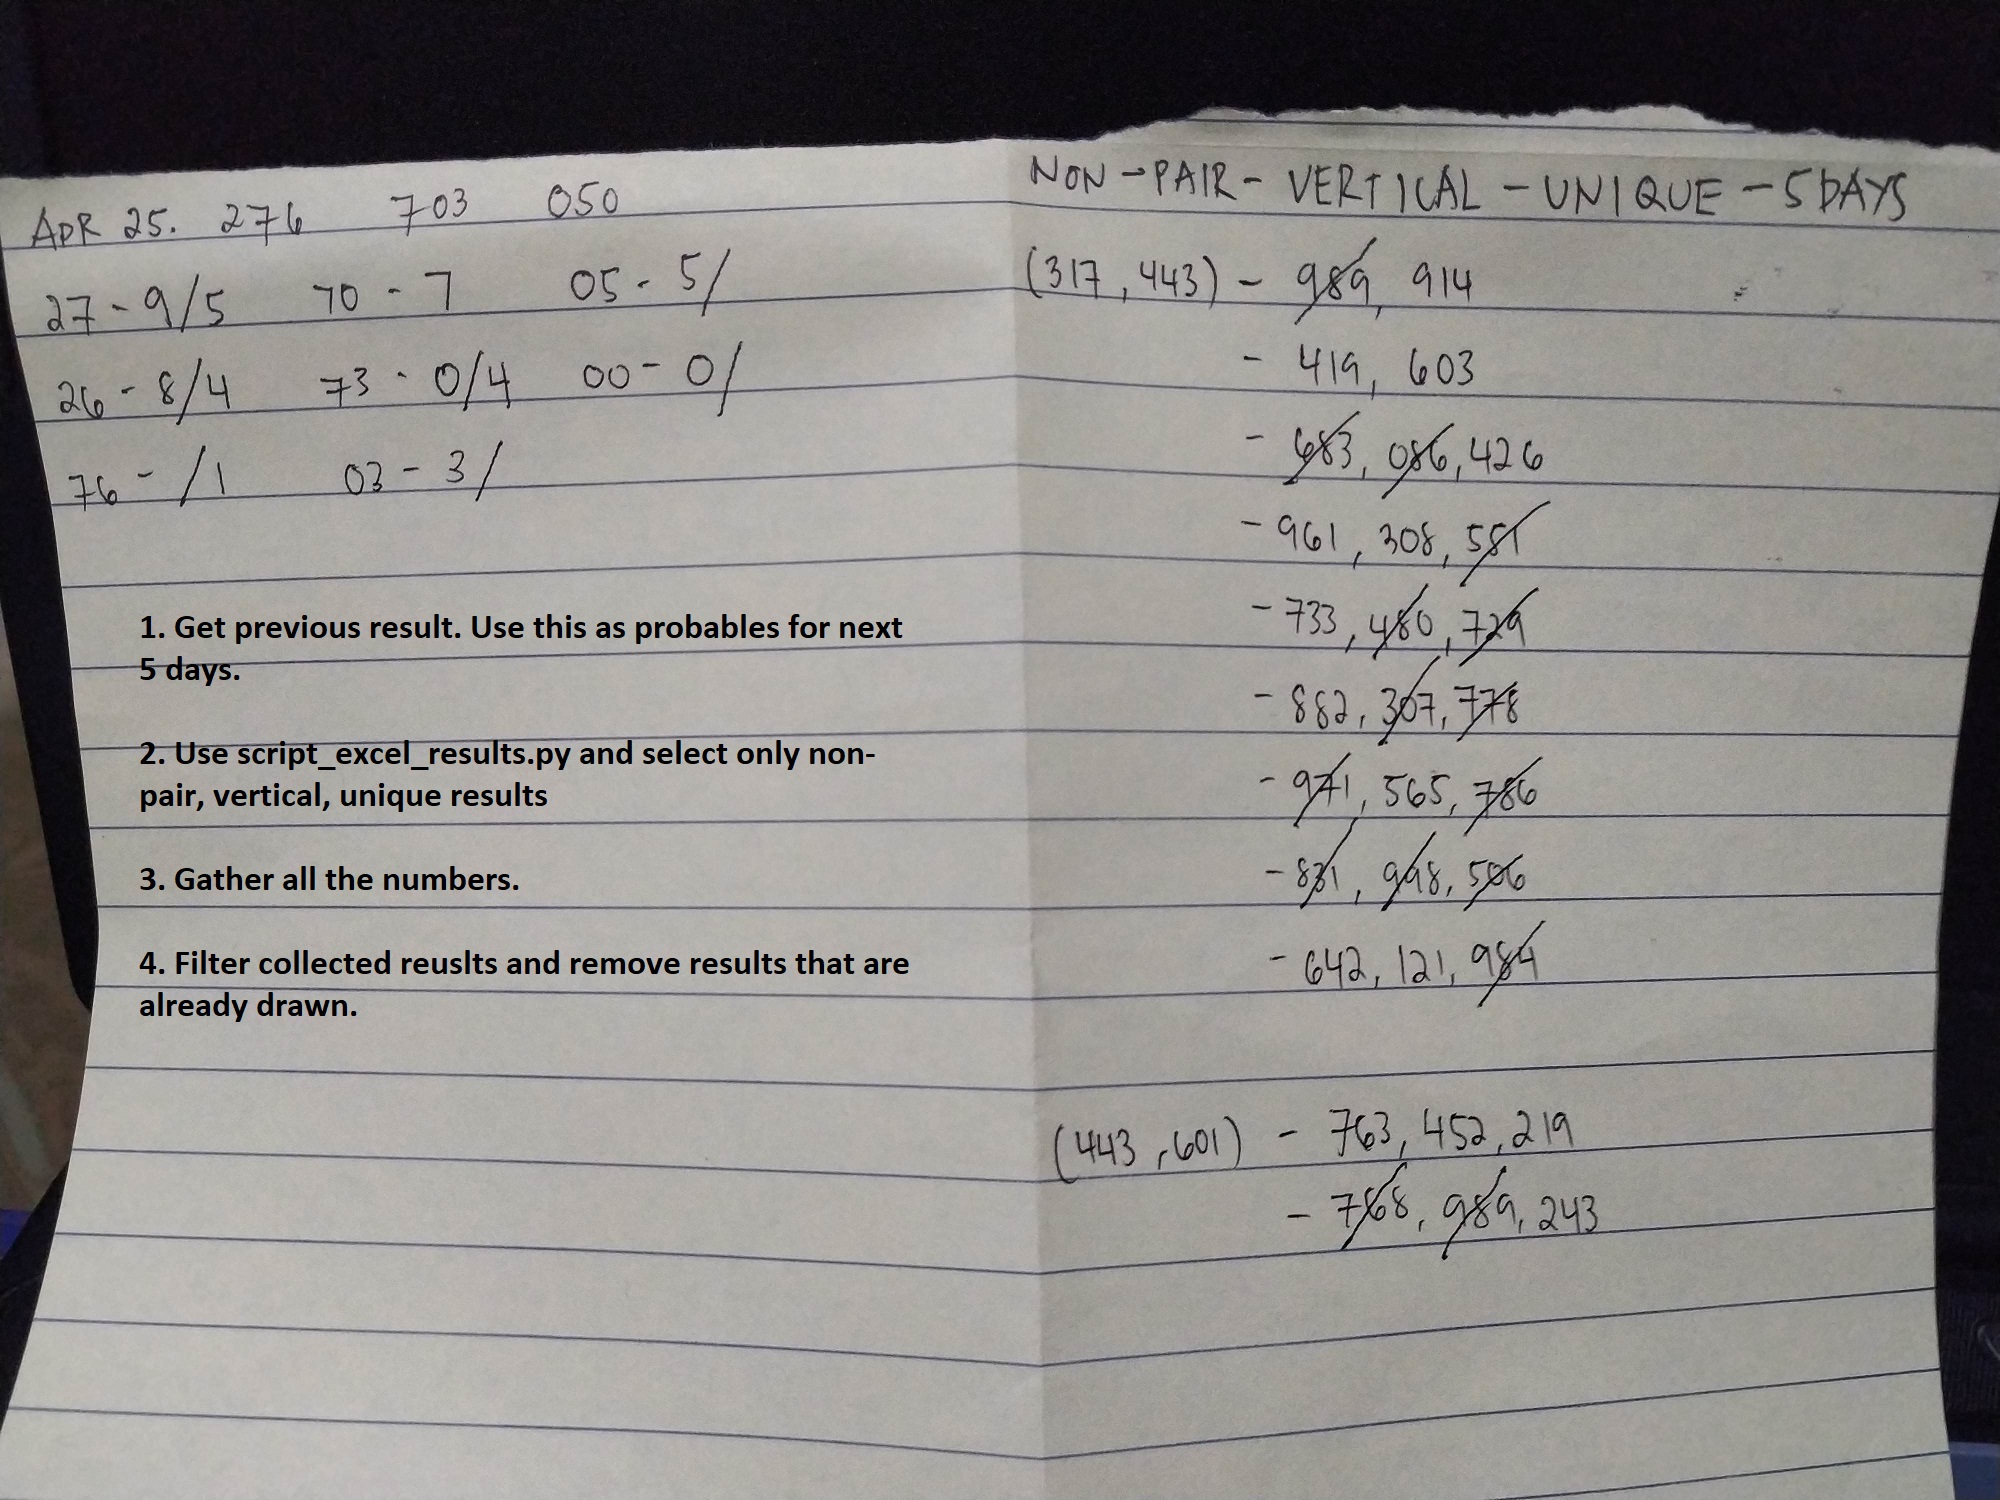 APR 25. 276 703 050
27 - 9/5 70 - 7 05 - 5/
26 - 8/4 73 - 0/4 00 - 0/
76 - /1 03 - 3/
1. Get previous result. Use this as probables for next
5 days.
2. Use script_excel_results.py and select only non-
pair, vertical, unique results
3. Gather all the numbers.
4. Filter collected reuslts and remove results that are
already drawn.
NON - PAIR - VERTICAL - UNIQUE - 5 DAYS
(317, 443) - 989, 914
- 419, 603
- 683, 086, 426
- 961, 308, 581
- 733, 480, 729
- 882, 307, 778
- 971, 565, 786
- 831, 998, 506
- 642, 121, 984
(443, 601) - 763, 452, 219
- 768, 989, 243